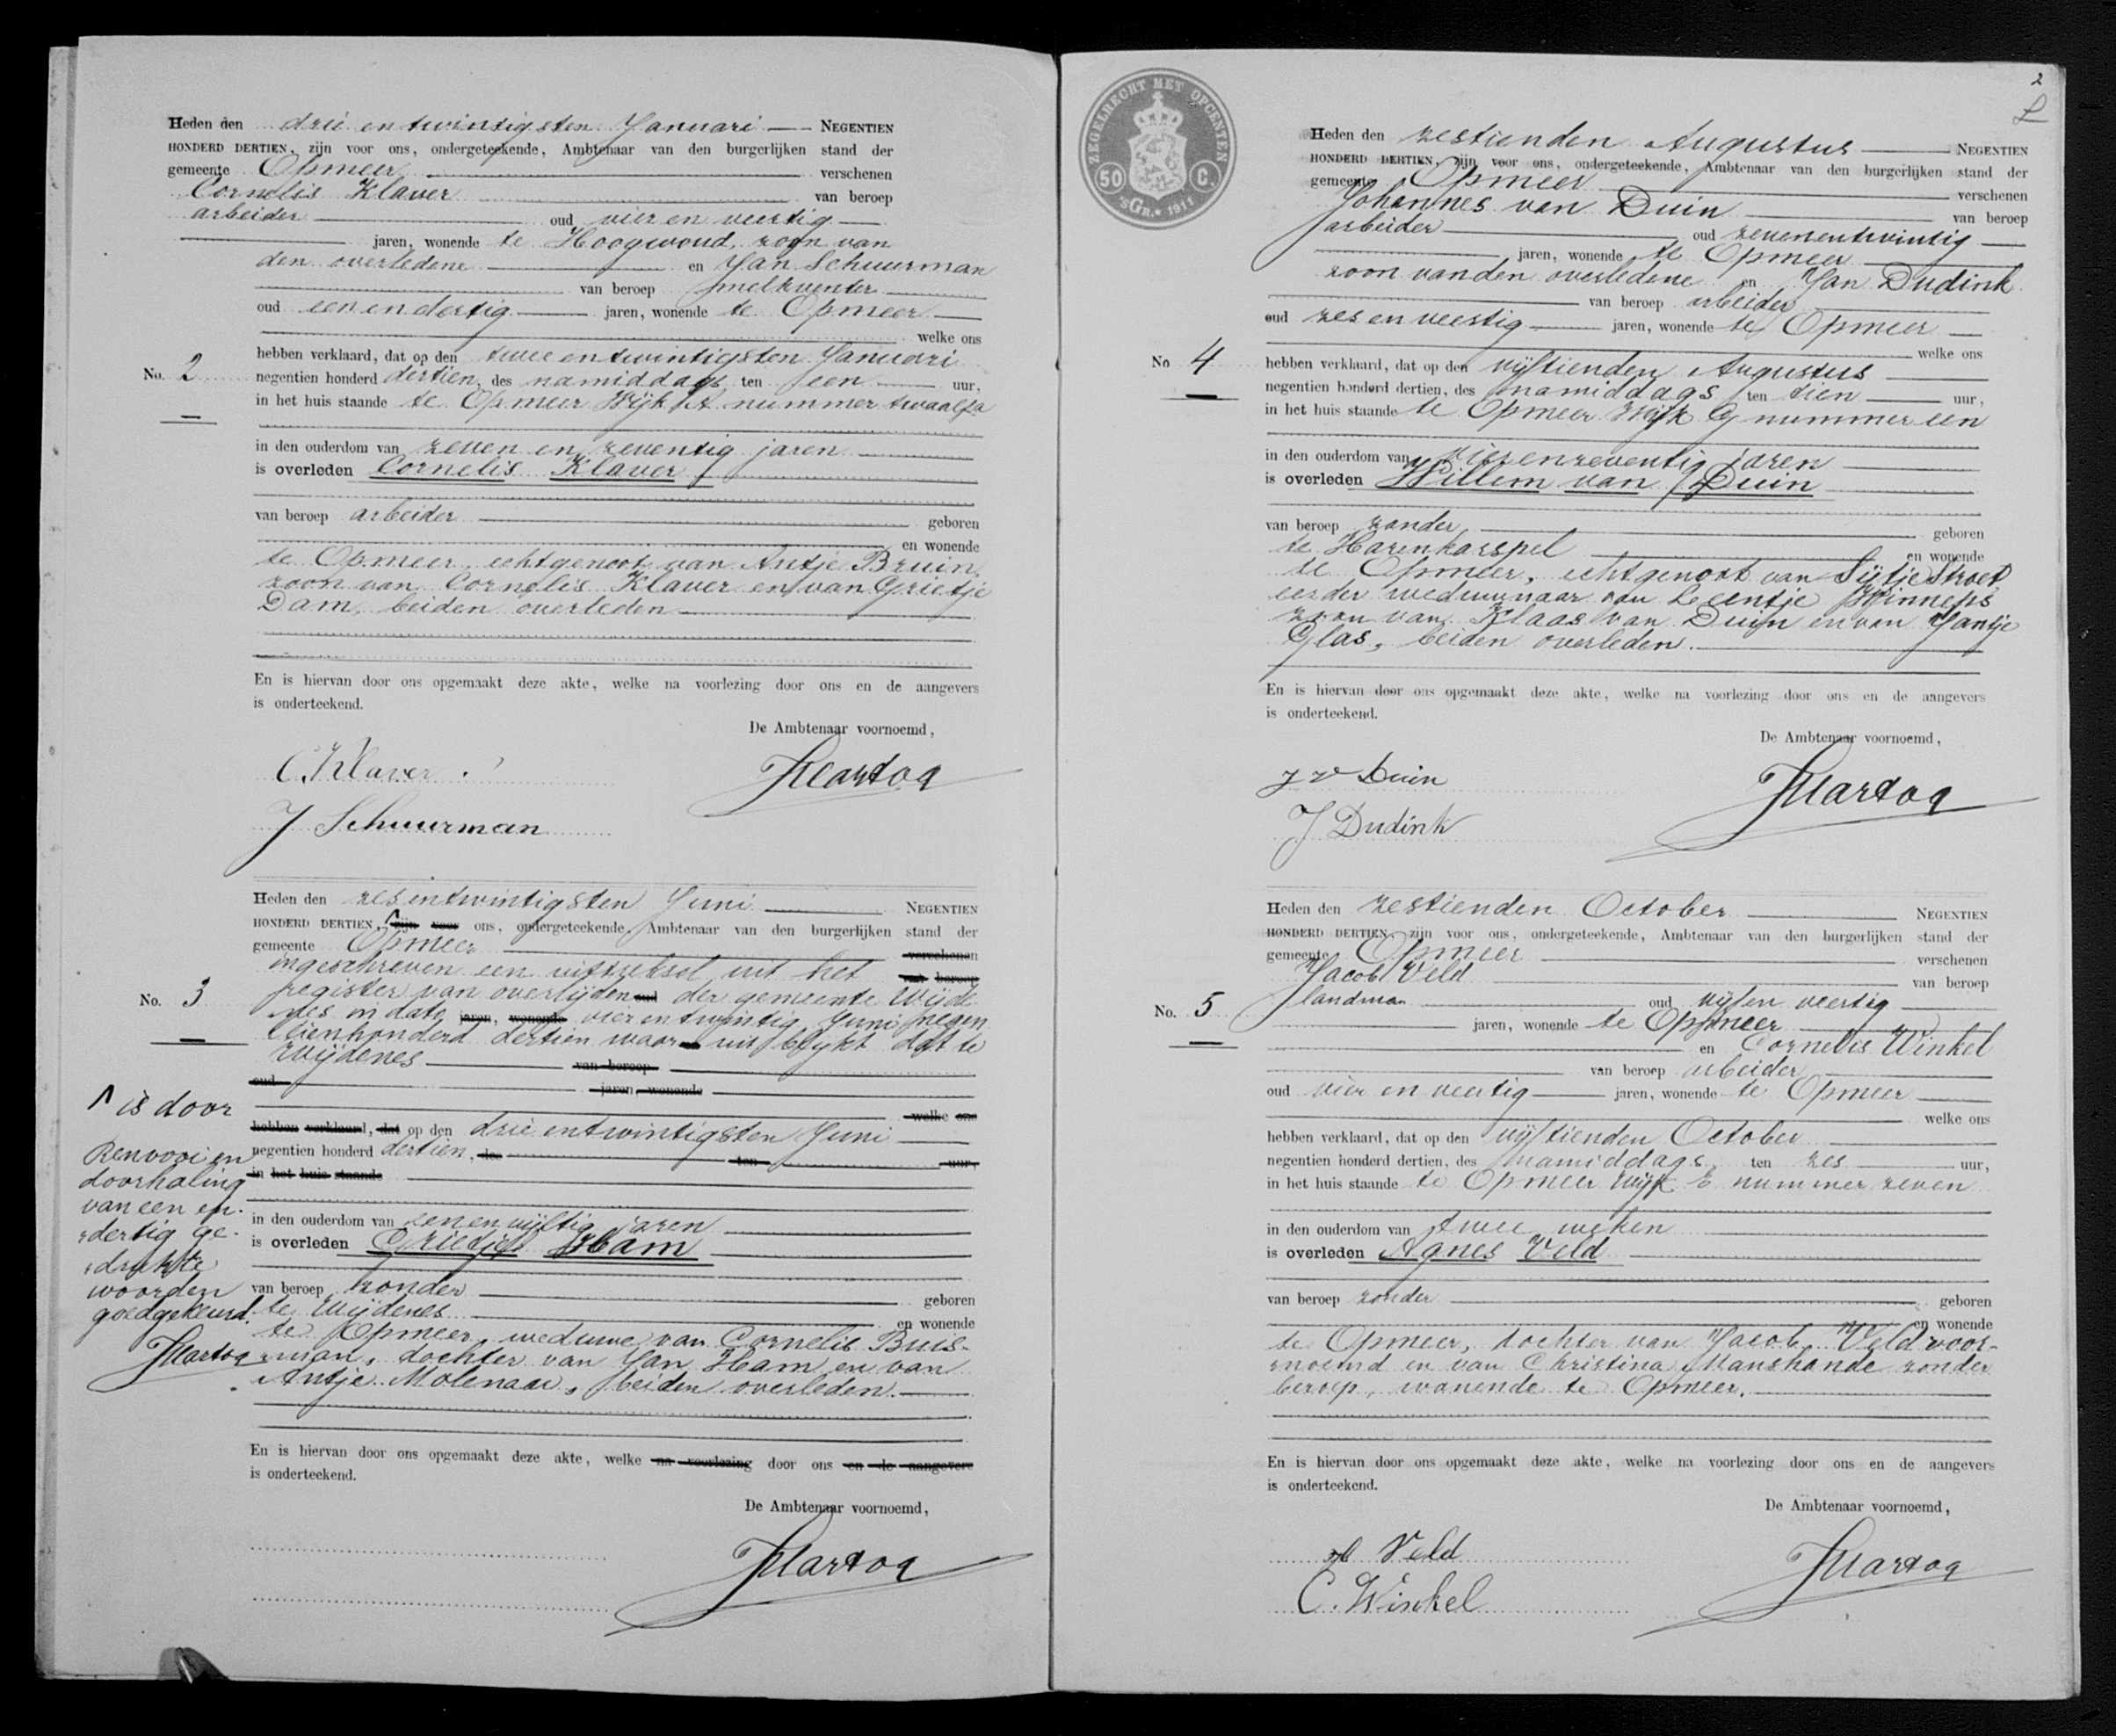 Heden den drie en twintigsten Januari NEGENTIEN
HONDERD DERTIEN, zijn voor ons, ondergeteekende, Ambtenaar van den burgerlijken stand der
gemeente Opmeer verschenen
Cornelis Klaver van beroep
arbeider oud vier en veertig
jaren, wonende te Hoogwoud, zoon van
den overledene en Jan Schuurman
van beroep melkventer
oud een en dertig jaren, wonende te Opmeer
welke ons
hebben verklaard, dat op den twee en twintigsten Januari
No. 2 negentien honderd dertien, des namiddags ten een uur,
in het huis staande te Opmeer Wijk A nummer twaalf a
in den ouderdom van zeven en zeventig jaren
is overleden Cornelis Klaver
van beroep arbeider geboren
en wonende
te Opmeer, echtgenoot van Antje Bruin,
zoon van Cornelis Klaver en van Grietje
Dam, beiden overleden
En is hiervan door ons opgemaakt deze akte, welke na voorlezing door ons en de aangevers
is onderteekend.
De Ambtenaar voornoemd,
C. Klaver. JHartog
J Schuurman
Heden den zesentwintigsten Juni NEGENTIEN
HONDERD DERTIEN, zijn voor ons, ondergeteekende, Ambtenaar van den burgerlijken stand der
gemeente Opmeer verschenen
ingeschreven een uittreksel uit het van beroep
register van overlijden oud der gemeente Wijde
No. 3 nes in dato jaren, wonende vier en twintig Juni negen
tienhonderd dertien waar en uit blijkt dat te
Wijdenes van beroep
oud jaren, wonende
welke ons
hebben verklaard, dat op den drie entwintigsten Juni
negentien honderd dertien, des ten uur,
in het huis staande
in den ouderdom van een en vijftig jaren
is overleden Grietje Ham
van beroep zonder geboren
te Wijdenes en wonende
te Opmeer, weduwe van Cornelis Buis-
man, dochter van Jan Ham en van
Antje Molenaar, beiden overleden.
^ is door
Renvooi en
doorhaling
van een en
dertig ge-
drukte
woorden
goedgekeurd.
JHartog
En is hiervan door ons opgemaakt deze akte, welke na voorlezing door ons en de aangevers
is onderteekend.
De Ambtenaar voornoemd,
JHartog
2
ZEGELRECHT MET OPCENTEN
50 C.
'sGR. 1911
Heden den zestienden Augustus NEGENTIEN
HONDERD DERTIEN, zijn voor ons, ondergeteekende, Ambtenaar van den burgerlijken stand der
gemeente Opmeer verschenen
Johannes van Duin van beroep
arbeider oud zevenentwintig
jaren, wonende te Opmeer
zoon van den overledene en Jan Dudink
van beroep arbeider
oud zes en veertig jaren, wonende te Opmeer
welke ons
No 4 hebben verklaard, dat op den vijftienden Augustus
negentien honderd dertien, des namiddags ten tien uur,
in het huis staande te Opmeer Wijk G nummer een
in den ouderdom van vierenzeventig jaren
is overleden Willem van Duin
van beroep zonder geboren
te Harenkarspel en wonende
te Opmeer, echtgenoot van Sijtje Stroet
eerder weduwnaar van Leentje Winnips
zoon van Klaas van Duin en van Jantje
Glas, beiden overleden.
En is hiervan door ons opgemaakt deze akte, welke na voorlezing door ons en de aangevers
is onderteekend.
De Ambtenaar voornoemd,
J v Duin JHartog
J Dudink
Heden den zestienden October NEGENTIEN
HONDERD DERTIEN, zijn voor ons, ondergeteekende, Ambtenaar van den burgerlijken stand der
gemeente Opmeer verschenen
Jacob Veld van beroep
No. 5 landman oud vijf en veertig
jaren, wonende te Opmeer
en Cornelis Winkel
van beroep arbeider
oud vier en veertig jaren, wonende te Opmeer
welke ons
hebben verklaard, dat op den vijftienden October
negentien honderd dertien, des namiddags ten zes uur,
in het huis staande te Opmeer wijk E nummer zeven
in den ouderdom van twee weken
is overleden Agnes Veld
van beroep zonder geboren
en wonende
te Opmeer, dochter van Jacob Veld voor-
noemd en van Christina Manshande zonder
beroep, wonende te Opmeer.
En is hiervan door ons opgemaakt deze akte, welke na voorlezing door ons en de aangevers
is onderteekend.
De Ambtenaar voornoemd,
Veld JHartog
C. Winkel